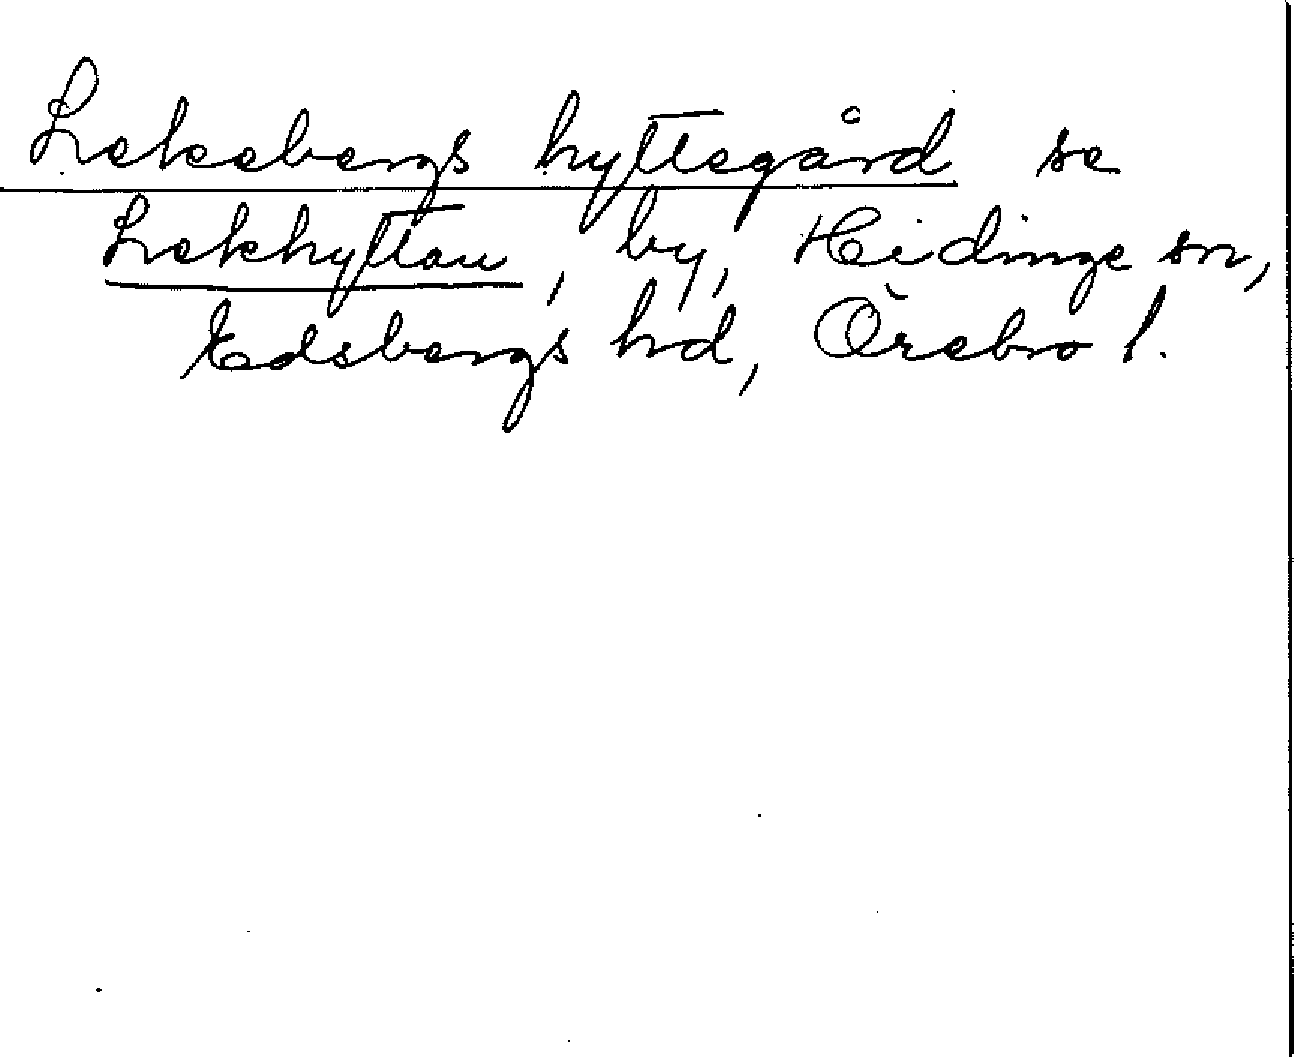 Lekebergs hyttegård se
Lekhyttan, by, Hidinge sn,
Edsbergs hd, Örebro l.